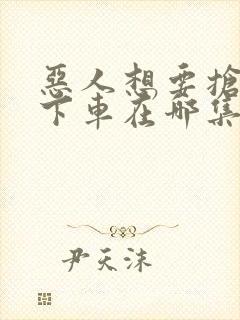 惡人想要搶
下車在哪集
尹天沫